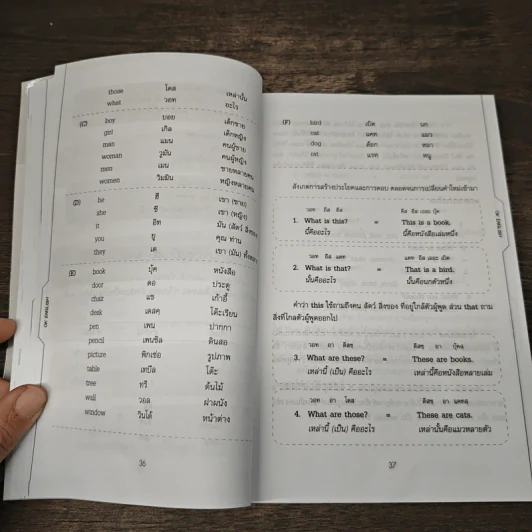 those โดส เหล่านั้น
what วอท อะไร
(C) boy บอย เด็กชาย
girl เกิล เด็กหญิง
man แมน คนผู้ชาย
woman วูมัน คนผู้หญิง
men เมน ชายหลายคน
women วิมมิน หญิงหลายคน
(D) he ฮี เขา (ชาย)
she ชี เขา (หญิง)
it อิท มัน (สัตว์ สิ่งของ
you ยู คุณ ท่าน
they เด เขา (มัน) ทั้งหลาย
(E) book บุ๊ค หนังสือ
door ดอ ประตู
chair แช เก้าอี้
desk เดสค โต๊ะเรียน
pen เพน ปากกา
pencil เพนซิล ดินสอ
picture พิกเช่อ รูปภาพ
table เทบึล โต๊ะ
tree ทรี ต้นไม้
wall วอล ฝาผนัง
window วินโด้ หน้าต่าง
36
OK ENGLISH
(F) bird เบิด นก
cat แคท แมว
dog ด็อก หมา
rat แรท หนู
สังเกตการสร้างประโยคและการตอบ ตลอดจนการเปลี่ยนคำใหม่เข้ามา
วอท อีส ดิส ดิส อีส เออะ บุ๊ค
1. What is this? = This is a book.
นี้คืออะไร นี้คือหนังสือเล่มหนึ่ง
วอท อีส แดท แดท อีส เออะ เบิด
2. What is that? = That is a bird.
นั้นคืออะไร นั้นคือนกตัวหนึ่ง
คำว่า this ใช้ถามถึงคน สัตว์ สิ่งของ ที่อยู่ใกล้ตัวผู้พูด ส่วน that ถาม
สิ่งที่ไกลตัวผู้พูดออกไป
วอท อา ดีสซฺ ดีสซฺ อา บุ๊คสฺ
3. What are these? = These are books.
เหล่านี้ (เป็น) คืออะไร เหล่านี้คือหนังสือหลายเล่ม
วอท อา โดส ดีสซฺ อา แคทสฺ
4. What are those? = These are cats.
เหล่านี้ (เป็น) คืออะไร เหล่านั้นคือแมวหลายตัว
37
OK ENGLISH